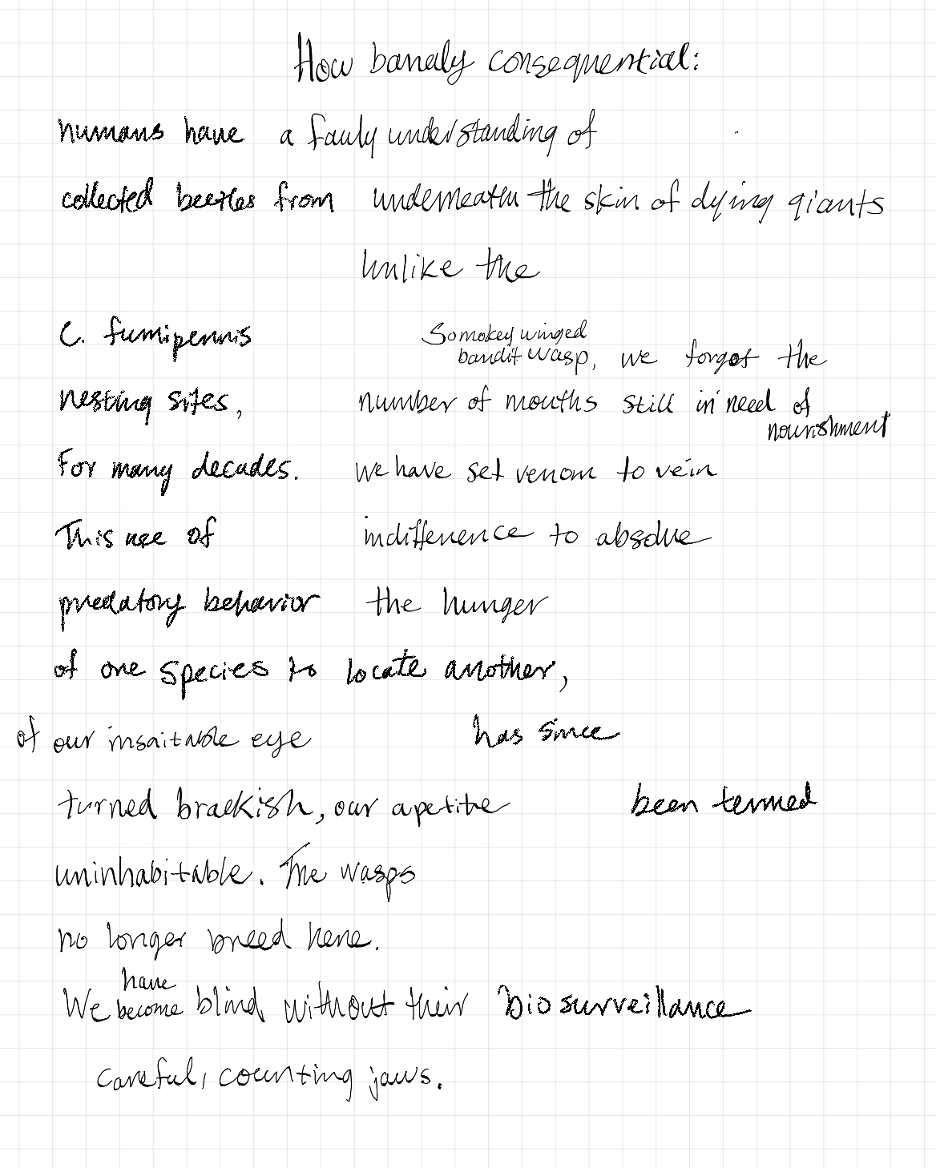 How banaly consequential:
humans have a fauly understanding of
collected beetles from underneath the skin of dying giants
Unlike the
C. fumipennis Somokey winged
bandit wasp, we forgot the
nesting sites, number of mouths still in need of
nourishment
For many decades. we have set venom to vein
This use of indifference to absolve
predatory behavior the hunger
of one species to locate another,
of our insaitable eye has since
turned brackish, our apetite been termed
uninhabitable. The wasps
no longer breed here.
have
We become blind without their biosurveillance
careful, counting jaws.